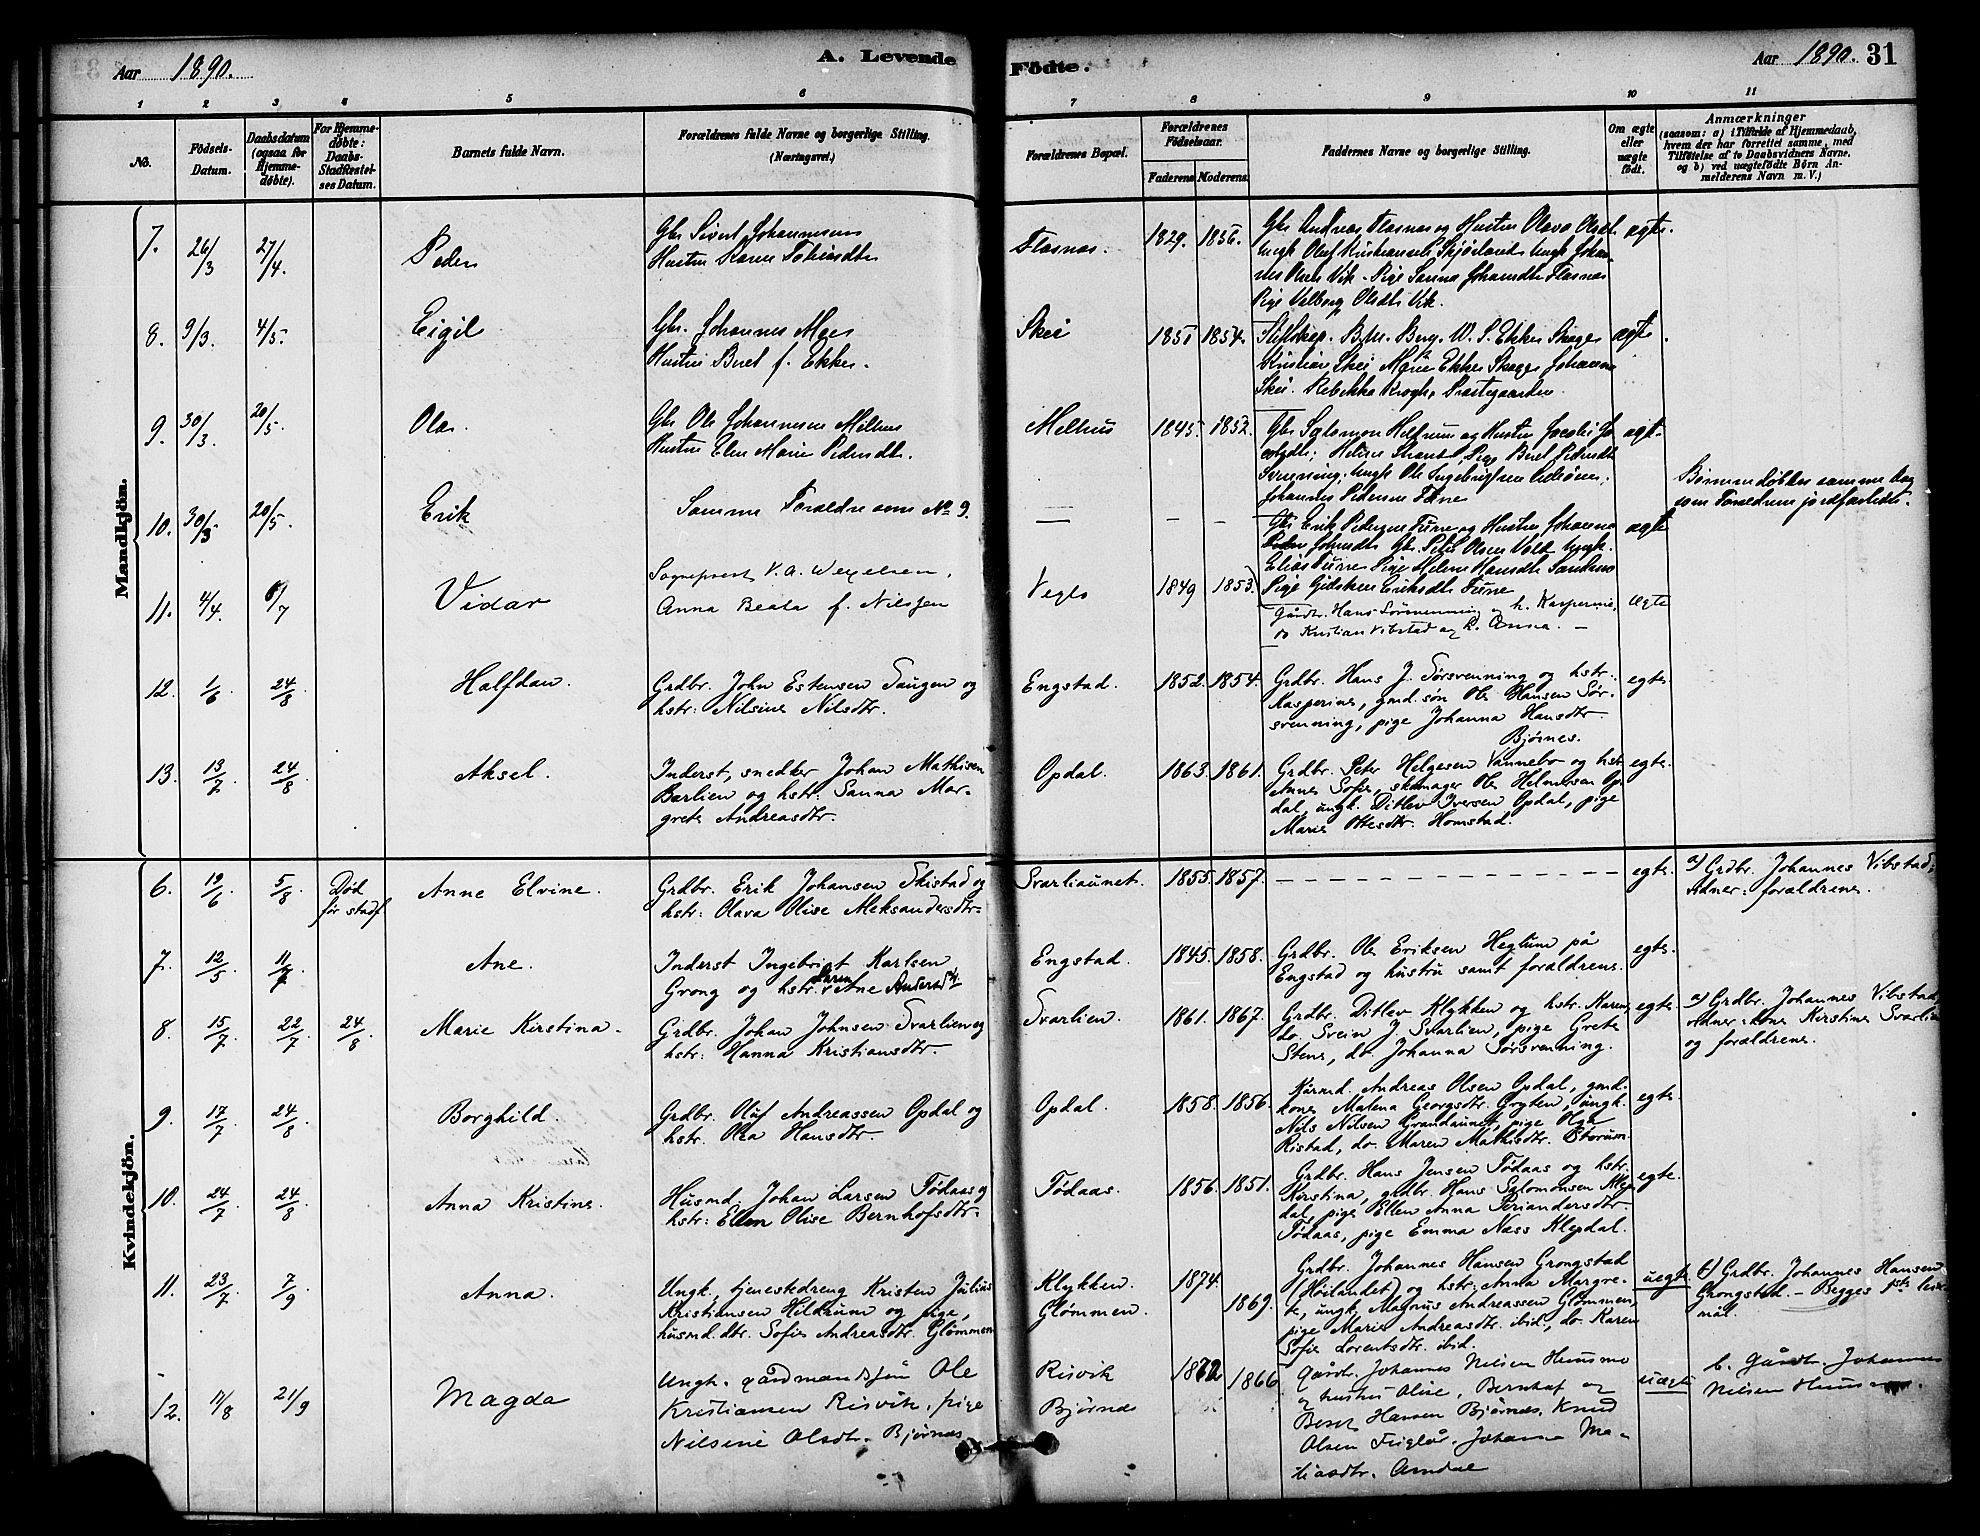 Aar 1890.
A. Levende Fødte.
Aar 1890. 31
1 2 3 4 5 6 7 8 9 10 11
No.
Fødsels-Datum.
Daabsdatum (ogsaa for Hjemme-døbte).
For Hjemme-døbte: Daabs-Stadfæstel-ses Datum.
Barnets fulde Navn.
Forældrenes fulde Navne og borgerlige Stilling. (Næringsvei.)
Forældrenes Bopæl.
Forældrenes Fødselsaar.
Faderens Moderens
Faddernes Navne og borgerlige Stilling.
Om ægte eller uægte født.
Anmærkninger
(saasom: a) i Tilfælde af Hjemmedaab, hvem der har forrettet samme, med Tilføielse af to Daabsvidners Navne, og b) ved uægtefødte Børn An-melderens Navn m. V.)
Mandkjön.
7. 26/3 27/4. Peder Gbr Sivert Johannesen Flasnas. 1829. 1856. Gbr Andreas Flasnas og Hustru Olava Olsdt. ægte.
Hustru Karen Tobiasdtr
Ungk Oluf Kristiansen Ungk Johan-
nes Olsen Vik. Pige Sanna Johansdtr Flasnas
Pige Valborg Olsdtr Vik.
8. 9/3. 4/5. Eigil Gbr. Johannes Moe Skei 1851 1854. Berg. W. S. Ekker Skage ægte.
Hustru Beret f. Ekker.
Kristian Skei Marie Ekker Skage Johanna
Skei. Rebekka Krogh, Præstegaarden
9. 30/3. 20/5. Ola. Gbr Ole Johannesen Melhus Melhus 1845. 1852. Gbr Salomon Hildrum og Hustru ægte.
Hustru Elen Marie Pedersdtr.
Pige Beret Pedersdt
Svenning, Ungk Ole Ingebrigtsen
Johannes Pedersen Turne
10. 30/3 20/5. Erik Samme Forældre som No 9. — - - Gbr Erik Pedersen Turne og Hustru Johanna ægte
Børnene døbtes samme dag
som Forældrene jordfæstedes.
Johnsdtr Gbr. Peter Olsen Ungk.
Elias Turne Pige Helene Hansdtr
Pige Gidsken Eriksdtr Turne
11. 4/4. 6/7 Vidar Sogneprest V. A. Wexelsen, Vegls 1849 1853. ægte
Anna Beata f. Nilssen
Gårdbr. Hans Sørsvenning og h. Kasperine,
og Kristian Vibstad og h. Anna. —
12. 1/6. 24/8 Halfdan. Grdbr. John Estensen Saugen og Engstad. 1852. 1854. Grdbr. Hans J. Sørsvenning og hstr. egte
hstr: Nilsine Nilsdtr.
Kasperine, gmd.søn Ole Hansen Sør-
svenning, pige Johanna Hansdtr.
Bjørnes.
13. 13/7 24/8 Aksel. Inderst, snedker Johan Mathisen Opdal. 1863. 1861. Grdbr. Peter Helgesen Vannebo og hstr egte.
Barlien og hstr: Sanna Mar-
grete Andreasdtr.
Anne Sofie, skomager Ole Helmersen Op-
dal, ungk. Ditlev Iversen Opdal, pige
Marie Ottesdtr. Homstad.
Kvindekjön.
6. 19/6 5/8 Død før stadf Anne Elvine. Grdbr. Erik Johansen Skistad og Svarliaunet. 1855. 1857. — — — egte. a) Grdbr. Johannes Vibstad;
hstr: Olava Olise Aleksandersdtr.
vidner: forældrene.
7. 12/5. 11/7 Ane. Inderst Ingebrigt Karlsen Engstad. 1845. 1858. Grdbr. Ole Eriksen Heglum på egte.
Grong og hstr: Karen Ane Andersdtr
Engstad og hustru samt forældrene.
8. 15/7 22/7 24/8 Marie Kirstina. Grdbr. Johan Johnsen Svarlien og Svarlien. 1861. 1867. Grdbr. Ditlev Klykken og hstr. Karen, egte a) Grdbr. Johannes Vibstad,
hstr: Hanna Kristiansdtr.
do. Svein J. Svarlien, pige Grete
Stene, do. Johanna Sørsvenning.
vidner: kone Kirstine Svarlien
og forældrene.
9. 17/7 24/8 Borghild. Grdbr. Oluf Andreassen Opdal og Opdal. 1858. 1856. Kårmd. Andreas Olsen Opdal, gmd. egte.
hstr. Olea Hansdtr.
kone Malena Georgsdtr. Gryten, ungk.
Nils Nilsen Grandaunet, pige Olga
Ristad, do. Maren Mathisdtr. Storum.
10. 24/7 24/8 Anna Kristine. Husmd. Johan Larsen Tødaas og Tødaas. 1856. 1851. Grdbr. Hans Jensen Tødaas og hstr. egte.
hstr: Ellen Olise Bernhofsdtr.
Kirstina, grdbr. Hans Salomonsen Klep-
dal, pige Ellen Anna Periandersdtr.
Tødaas, pige Emma Næss Klepdal.
11. 23/7 7/9 Anna. Ungk., tjenestedreng Kristen Julius Klykken. 1874. Grdbr. Johannes Hansen Grongstad uegte b) Grdbr. Johannes Hansen
Kristiansen Hildrum og pige, Glømmen. 1869.
husmd.dtr. Sofie Andreasdtr. Glømmen
(Høilandet) og hstr. Anna Margre-
te, ungk. Magnus Andreassen Glømmen,
pige Marie Andreasdtr. ibid., do. Karen
Sofie Lorentsdtr. ibid.
Grongstad. — Begges 1ste leier-
mål.
12. 11/8 21/9 Magda Ungk. gårdmandssøn Ole Risvik 1872 Gårdbr. Johannes Nilsen Hummo uægte b. Gårdbr. Johannes
Kristiansen Risvik, pige Bjørnes 1866
Nilsine Olsdtr. Bjørnes
og hustru Olise, Bernhof og
Beret Hansen Bjørnes, Knud
Olsen Fuglår, Johanna Ma-
tiasdtr. Amdal
Nilsen Hummo.